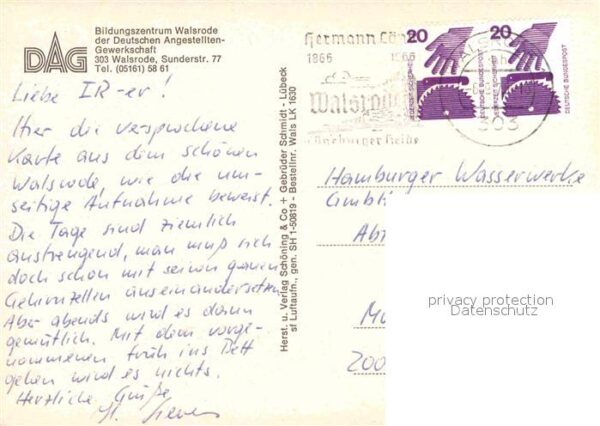 DAG
Bildungszentrum Walsrode
der Deutschen Angestellten-
Gewerkschaft
303 Walsrode, Sunderstr. 77
Tel. (05161) 58 61
Liebe IR-er!
Hier die versprochene
Karte aus dem schönen
Walsrode, wie die um-
seitige Aufnahme beweist.
Die Tage sind ziemlich
anstrengend, man muß sich
doch schon mit seinen grauen
Gehirnzellen auseinandersetzen
Aber abends wird es dann
gemütlich. Mit dem vorge-
nommenen früh ins Bett
gehen wird es nichts.
Herzliche Grüße
Herst. u. Verlag Schöning & Co + Gebrüder Schmidt · Lübeck
sf Luftaufn., gen. SH 1-50819 · Bestellnr. Wals LK 1630
Hermann Löns
1866 1966
Walsrode
Lüneburger Heide
20
20
DEUTSCHE BUNDESPOST
DEUTSCHE BUNDESPOST
303
Hamburger Wasserwerke
GmbH
privacy protection
Datenschutz